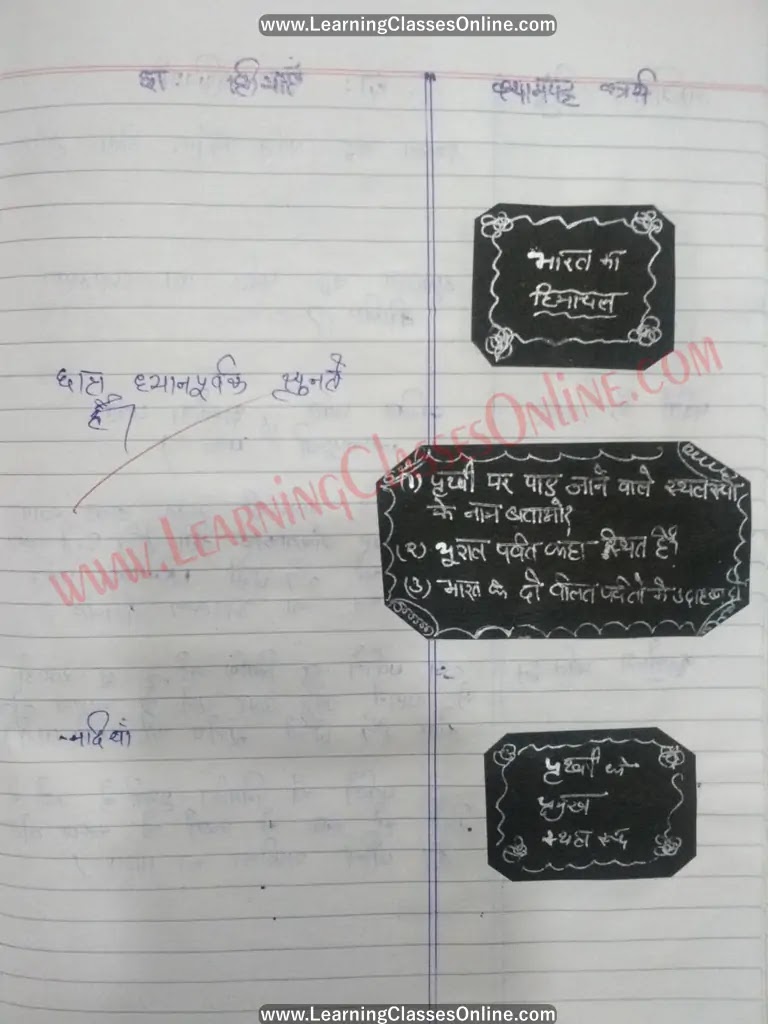 www.LearningClassesOnline.com
छा. क्रियाएँ
श्यामपट्ट कार्य
भारत का
हिमाचल
छात्र ध्यानपूर्वक सुनते
हैं
(1) पृथ्वी पर पाए जाने वाले स्थलरूपों
के नाम बताओ?
(२) यूराल पर्वत कहा स्थित है?
(3) भारत के दो वलित पर्वतों के उदाहरण दो
www.LearningClassesOnline.com
नदियाँ
पृथ्वी के
प्रमुख
स्थल रूप
www.LearningClassesOnline.com